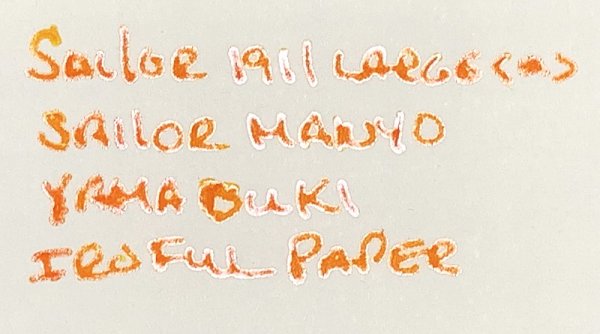 Sailor 1911 Large (M)
SAILOR MANYO
YAMABUKI
IROFUL PAPER